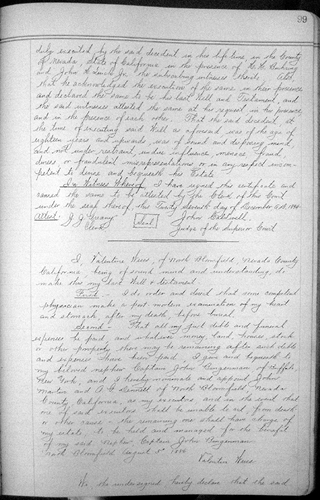 99
duly executed by the said decedent in his life time, in the County
of Nevada, State of California in the presence of
and John H. the subscribing witnesses thereto that
that he acknowledged the execution of the same in their presence
and declared the same to be his last Will and Testament, and
the said witnesses attested the same at his request in his presence
and in the presence of each other. That the said decedent at
the time of executing said Will as aforesaid was of the age of
eighteen years and upwards was of sound and disposing mind
and not under restraint, undue influence, menace, fraud,
duress or fraudulent misrepresentations or in any respect incom-
petent to devise and bequeath his Estate.
In Witness Whereof, I have signed this certificate and
caused the same to be attested by the Clerk of this Court
under the seal thereof this Twenty seventh day of November A.D. 1896
Attest: J. J. Greany seal John Caldwell
Clerk Judge of the Superior Court
I, Valentine of North Bloomfield, Nevada County
California being of sound mind and understanding, do
make this my last Will & testament.
First - I do order and direct that some competent
physician make a post mortem examination of my heart
and stomach, after my death, before burial.
Second - That all my just debts and funeral
expenses be paid and whatever money, land, houses, stock
or other property there may be remaining after said debts
and expenses have been paid, I give and bequeath to
my beloved nephew Captain John of Buffalo,
New York, and I hereby nominate and appoint John
Martin and of North Bloomfield, Nevada
County California, as my executors and in the event that
one of said executors shall be unable to act, from death
or other cause - the remaining one shall have charge of
my estate, to be held and managed for the benefit
of my said Nephew Captain John
North Bloomfield August 1896
Valentine
We the undersigned hereby declare that the said